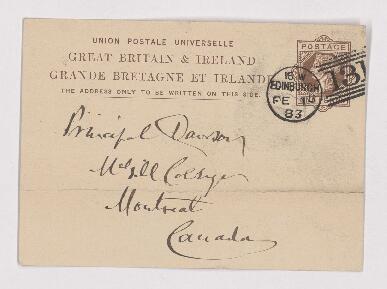 UNION POSTALE UNIVERSELLE
GREAT BRITAIN & IRELAND
GRANDE BRETAGNE ET IRLANDE
THE ADDRESS ONLY TO BE WRITTEN ON THIS SIDE.
POSTAGE
EDINBURGH
FE 14
83
131
Principal Dawson
McGill College
Montreal
Canada